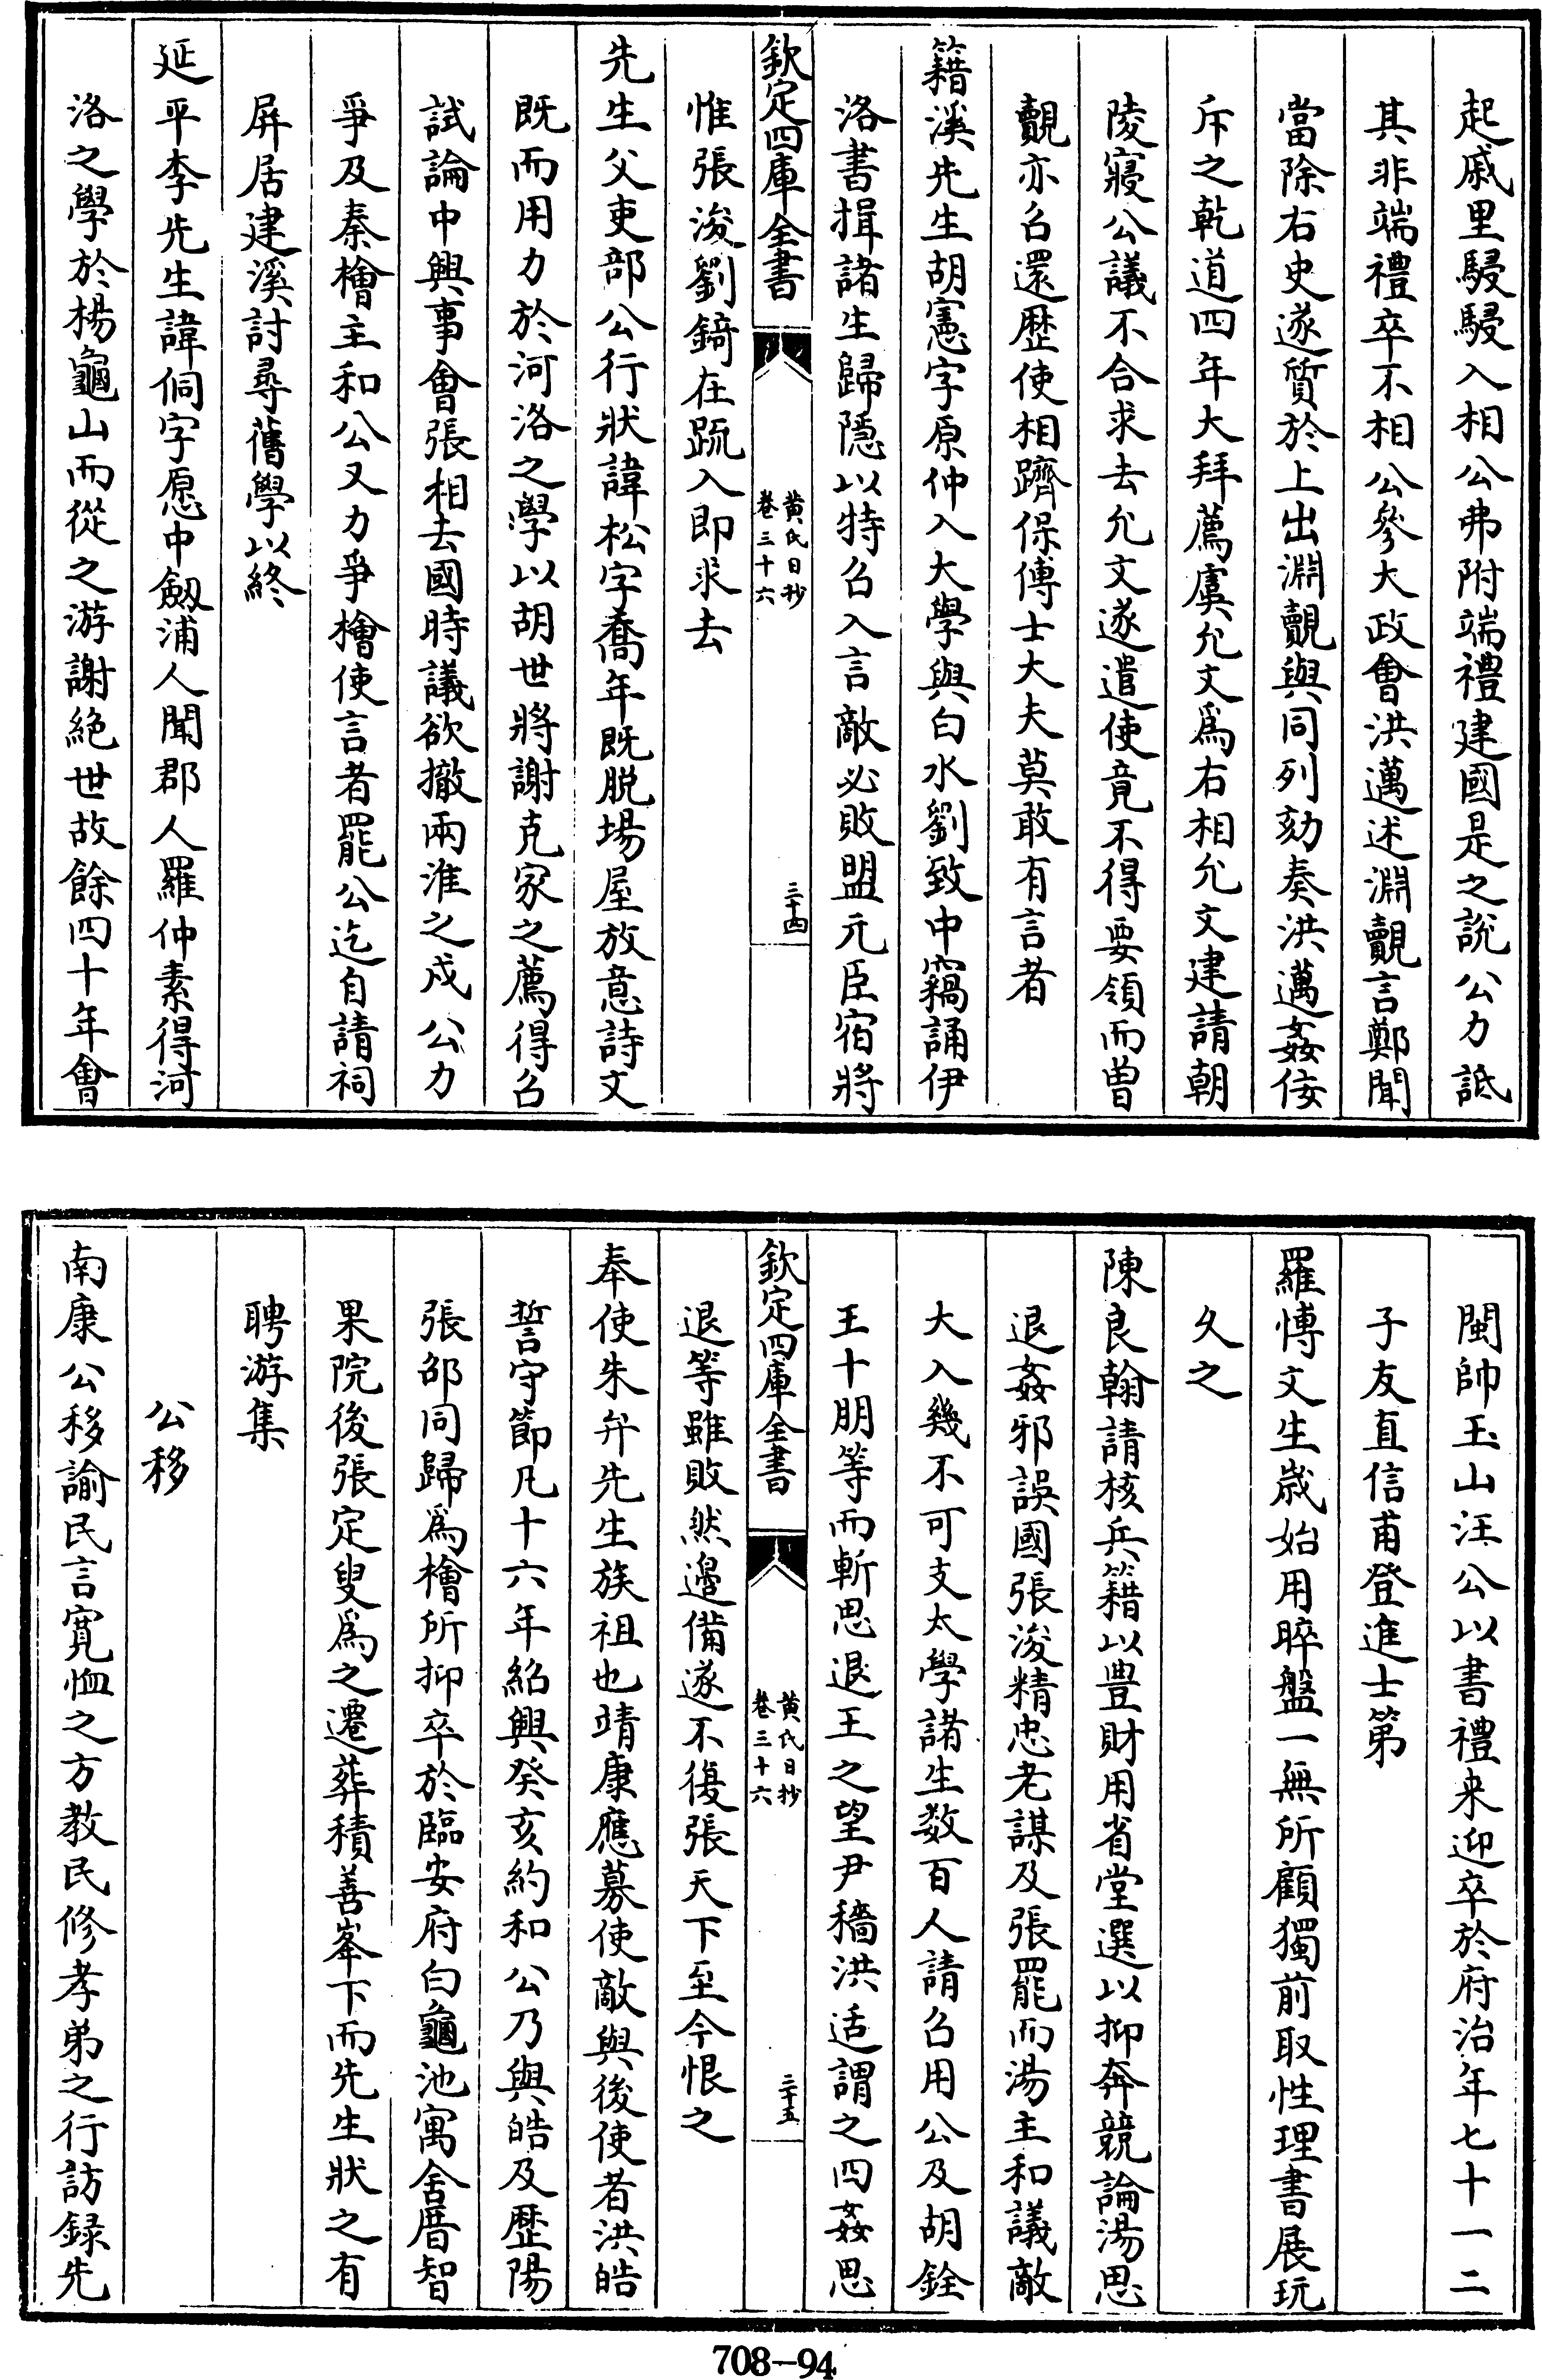 起戚里駸駸入相公弗附端禮建國是之說公力詆
其非端禮卒不相公參大政會洪邁述淵覿言鄭聞
當除右史遂質於上出淵覿與同列劾奏洪邁姦佞
斥之乾道四年大拜薦虞允文爲右相允文建請朝
陵寢公議不合求去允文遂遣使竟不得要領而曽
覿亦召還歴使相躋保傅士大夫莫敢有言者
籍溪先生胡憲字原仲入大學與白水劉致中竊誦伊
洛書揖諸生歸隱以特召入言敵必敗盟元臣宿將
欽定四庫全書
黄氏日抄
卷三十六
三十四
惟張浚劉錡在疏入即求去
先生父吏部公行狀諱松字喬年既脱場屋放意詩文
既而用力於河洛之學以胡世將謝克家之薦得召
試論中興事會張相去國時議欲撤兩淮之戍公力
爭及秦檜主和公又力爭檜使言者罷公迄自請祠
屏居建溪討尋舊學以終
延平李先生諱侗字愿中劔浦人聞郡人羅仲素得河
洛之學於楊龜山而從之游謝絶世故餘四十年會
閩帥玉山汪公以書禮来迎卒於府治年七十一二
子友直信甫登進士第
羅愽文生嵗始用晬盤一無所顧獨前取性理書展玩
久之
陳良翰請核兵籍以豊財用省堂選以抑奔競論湯思
退姦邪誤國張浚精忠老謀及張罷而湯主和議敵
大入幾不可支太學諸生数百人請召用公及胡銓
王十朋等而斬思退王之望尹穡洪适謂之四姦思
欽定四庫全書
黄氏日抄
卷三十六
三十五
退等雖敗然邉備遂不復張天下至今恨之
奉使朱弁先生族祖也靖康應募使敵與後使者洪皓
誓守節凡十六年紹興癸亥約和公乃與皓及歴陽
張邵同歸爲檜所抑卒於臨安府白龜池寓舍厝智
果院後張定叟爲之遷葬積善峯下而先生狀之有
聘游集
公移
南康公移諭民言寛恤之方教民修孝弟之行訪録先
708-94